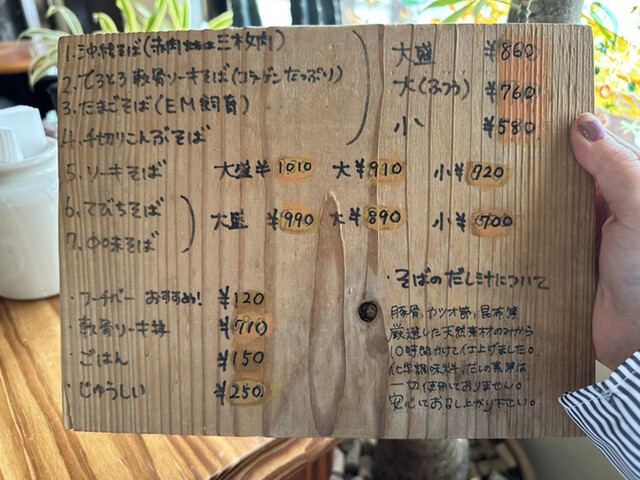 1. 沖縄そば(赤肉または三枚肉)
2. とろとろ軟骨ソーキそば(コラーゲンたっぷり)
3. たまごそば(EM飼育)
4. 千切りこんぶそば
大盛 ¥860
大(ふつう) ¥760
小 ¥580
5. ソーキそば 大盛¥1010 大¥910 小¥720
6. てびちそば
7. 中味そば
大盛 ¥990 大¥890 小¥700
・フーチバー おすすめ! ¥120
・軟骨ソーキ丼 ¥710
・ごはん ¥150
・じゅうしい ¥250
・そばのだし汁について
豚骨、カツオ節、昆布等
厳選した天然素材のみから
10時間かけて仕上げました。
化学調味料、だしの素等は
一切使用しておりません。
安心しておめし上がり下さい。